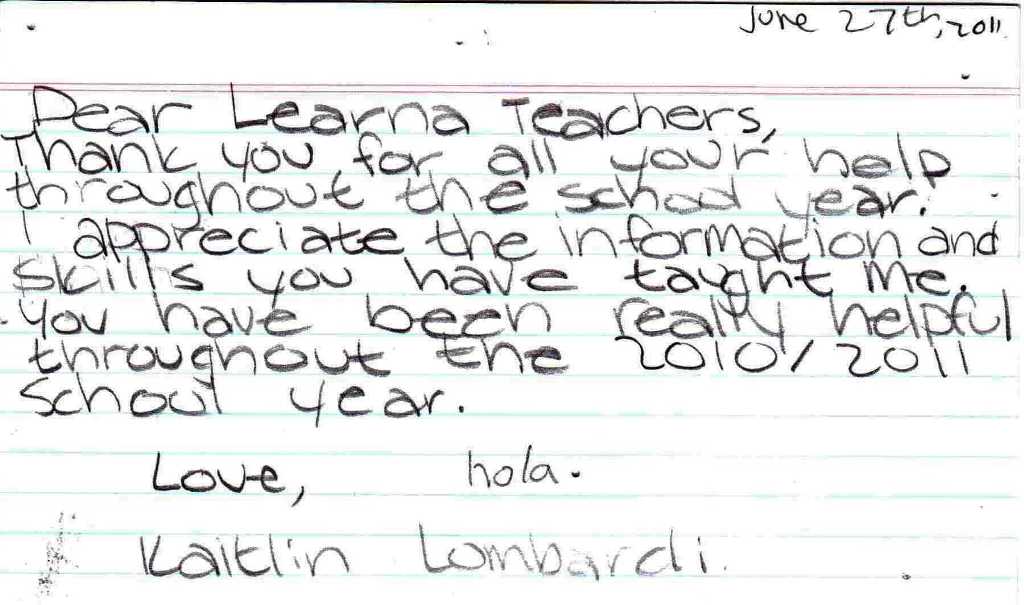 June 27th, 2011
Dear Learna Teachers,
Thank you for all your help
throughout the school year.
I appreciate the information and
skills you have taught me.
you have been really helpful
throughout the 2010/2011
school year.
Love, hola.
Kaitlin Lombardi.